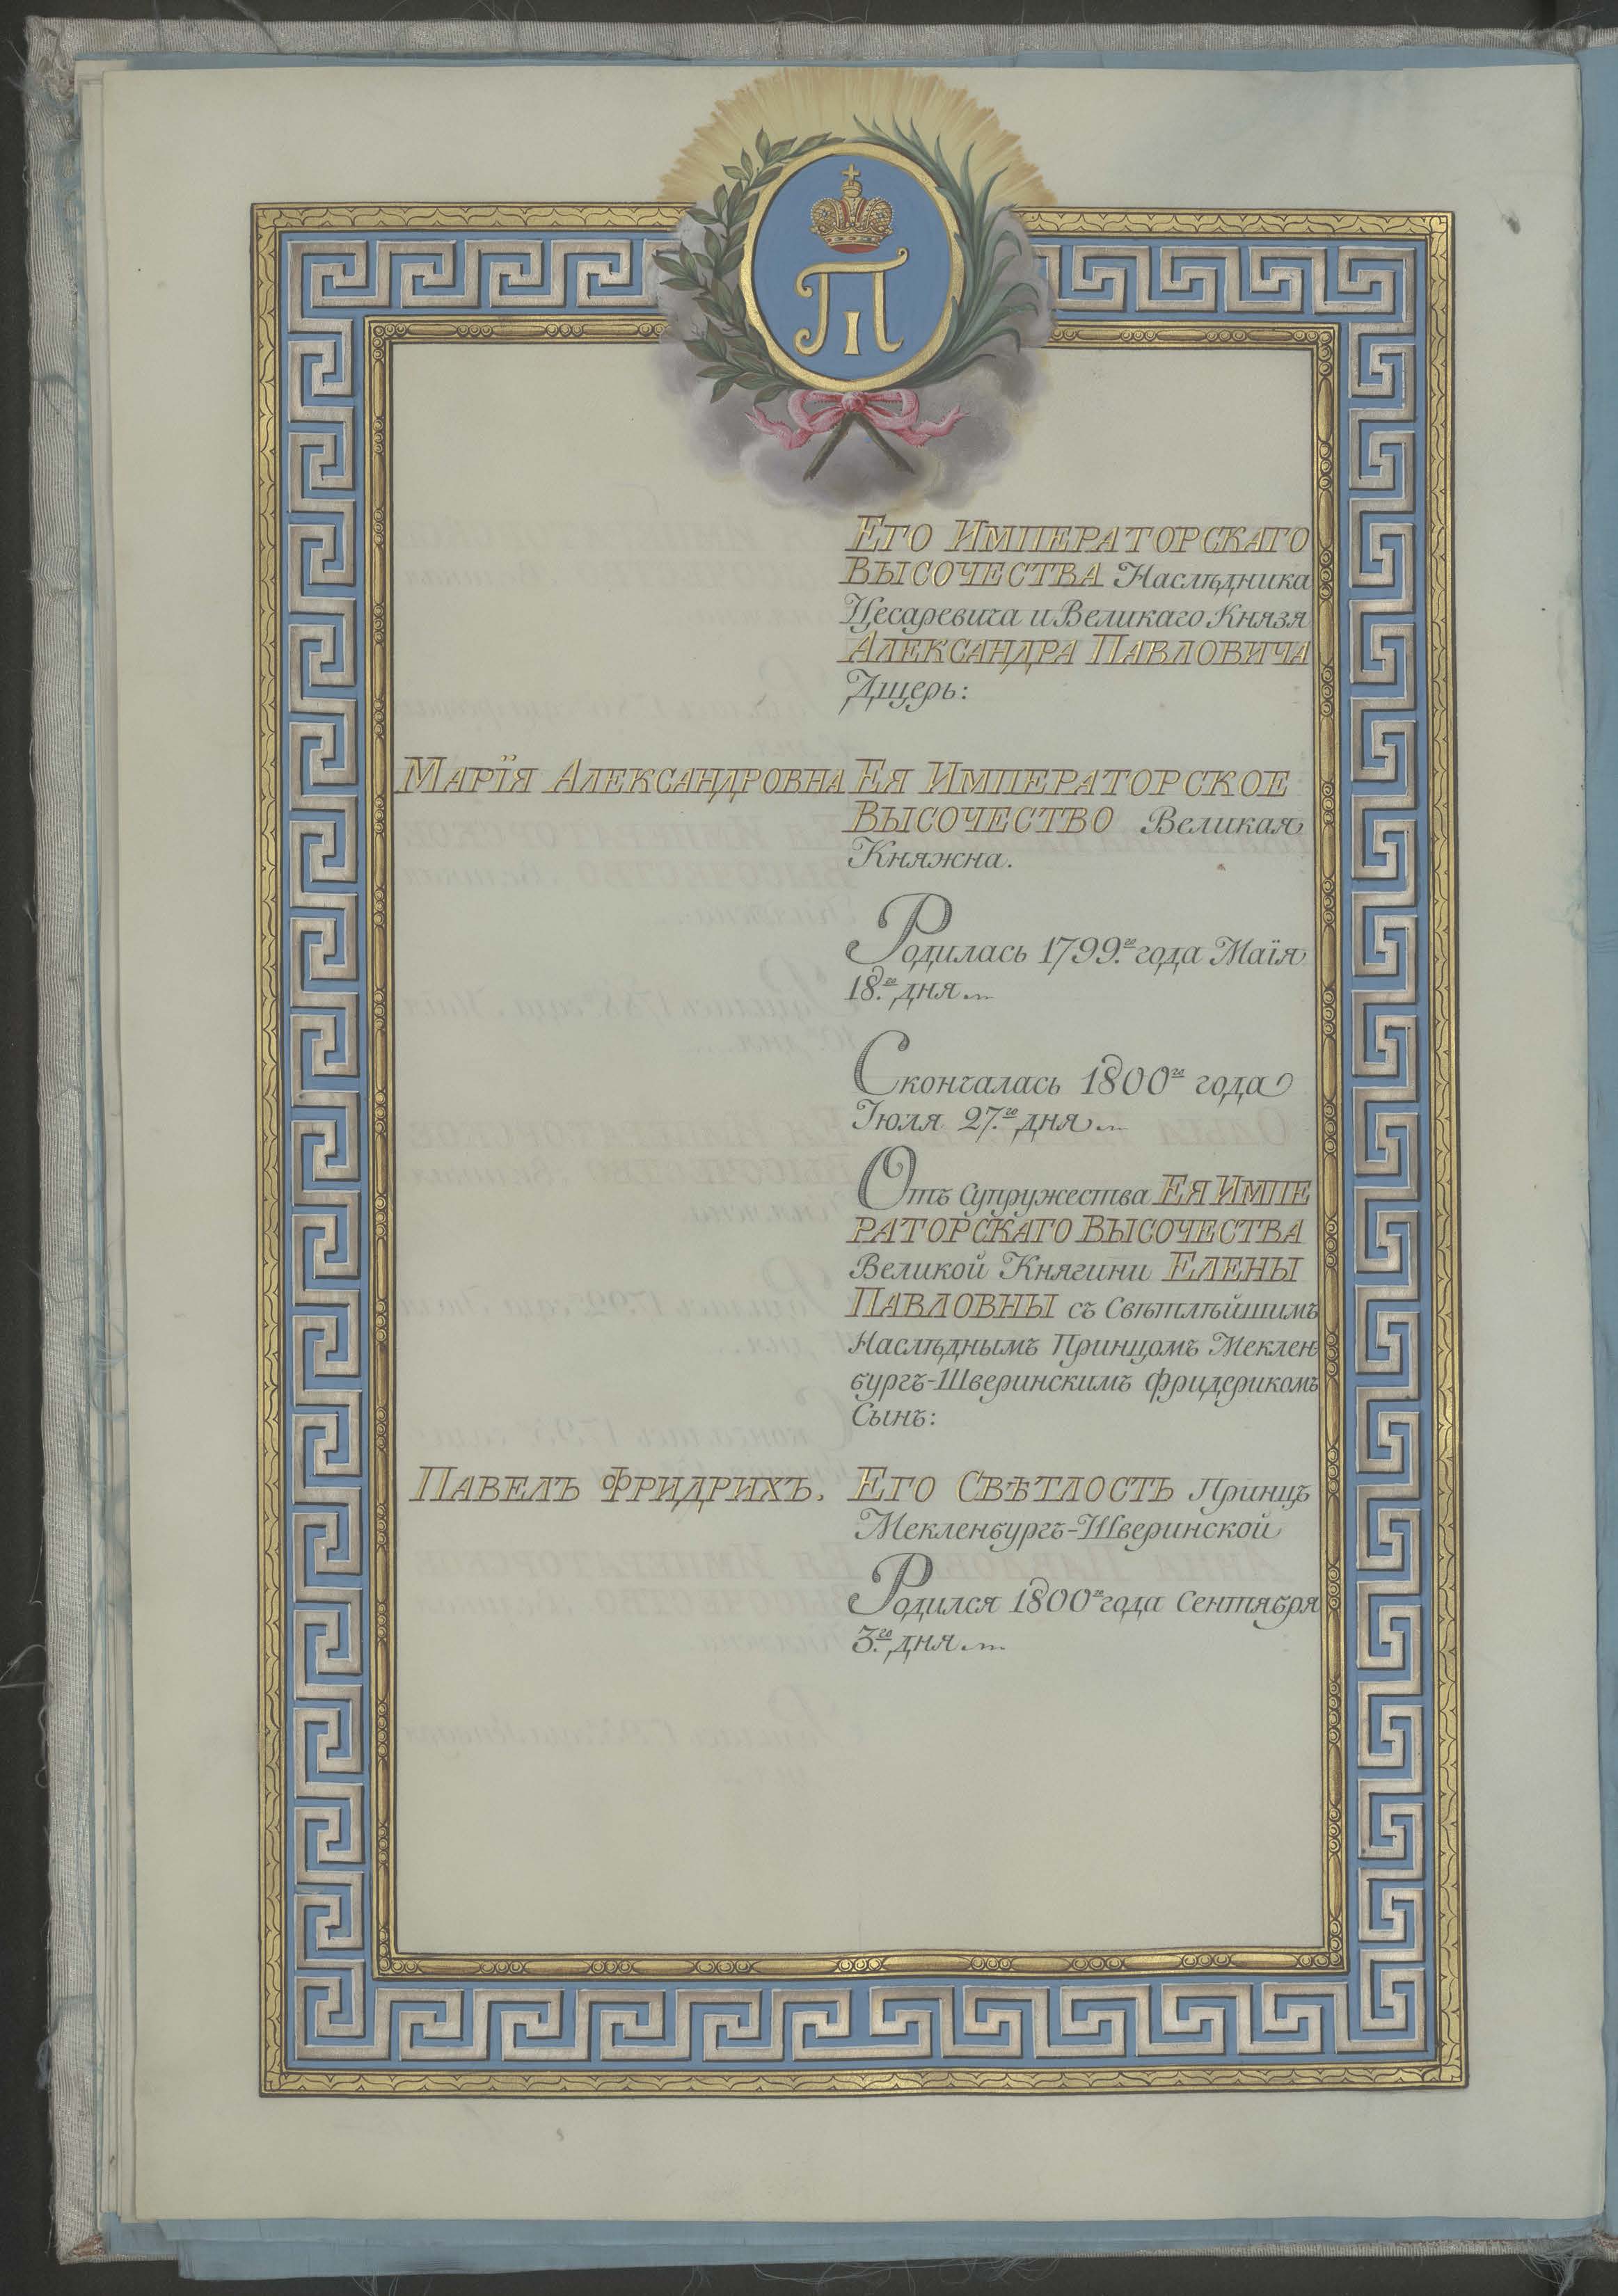 П I
ЕГО ИМПЕРАТОРСКАГО
ВЫСОЧЕСТВА Наслѣдника
Цесаревича и Великаго Князя
АЛЕКСАНДРА ПАВЛОВИЧА
Дщерь:
МАРЇЯ АЛЕКСАНДРОВНА ЕЯ ИМПЕРАТОРСКОЕ
ВЫСОЧЕСТВО Великая
Княжна.
Родилась 1799.го года Маїя
18.го дня
Скончалась 1800го года
Іюля 27.го дня
Отъ Супружества ЕЯ ИМПЕ
РАТОРСКАГО ВЫСОЧЕСТВА
Великой Княгини ЕЛЕНЫ
ПАВЛОВНЫ съ Свѣтлѣйшимъ
Наслѣднымъ Принцомъ Меклен
бургъ-Шверинскимъ Фридерикомъ
Сынъ:
ПАВЕЛЪ ФРИДРИХЪ. ЕГО СВѢТЛОСТЬ Принцъ
Мекленбургъ-Шверинской
Родился 1800го года Сентября
3.го дня